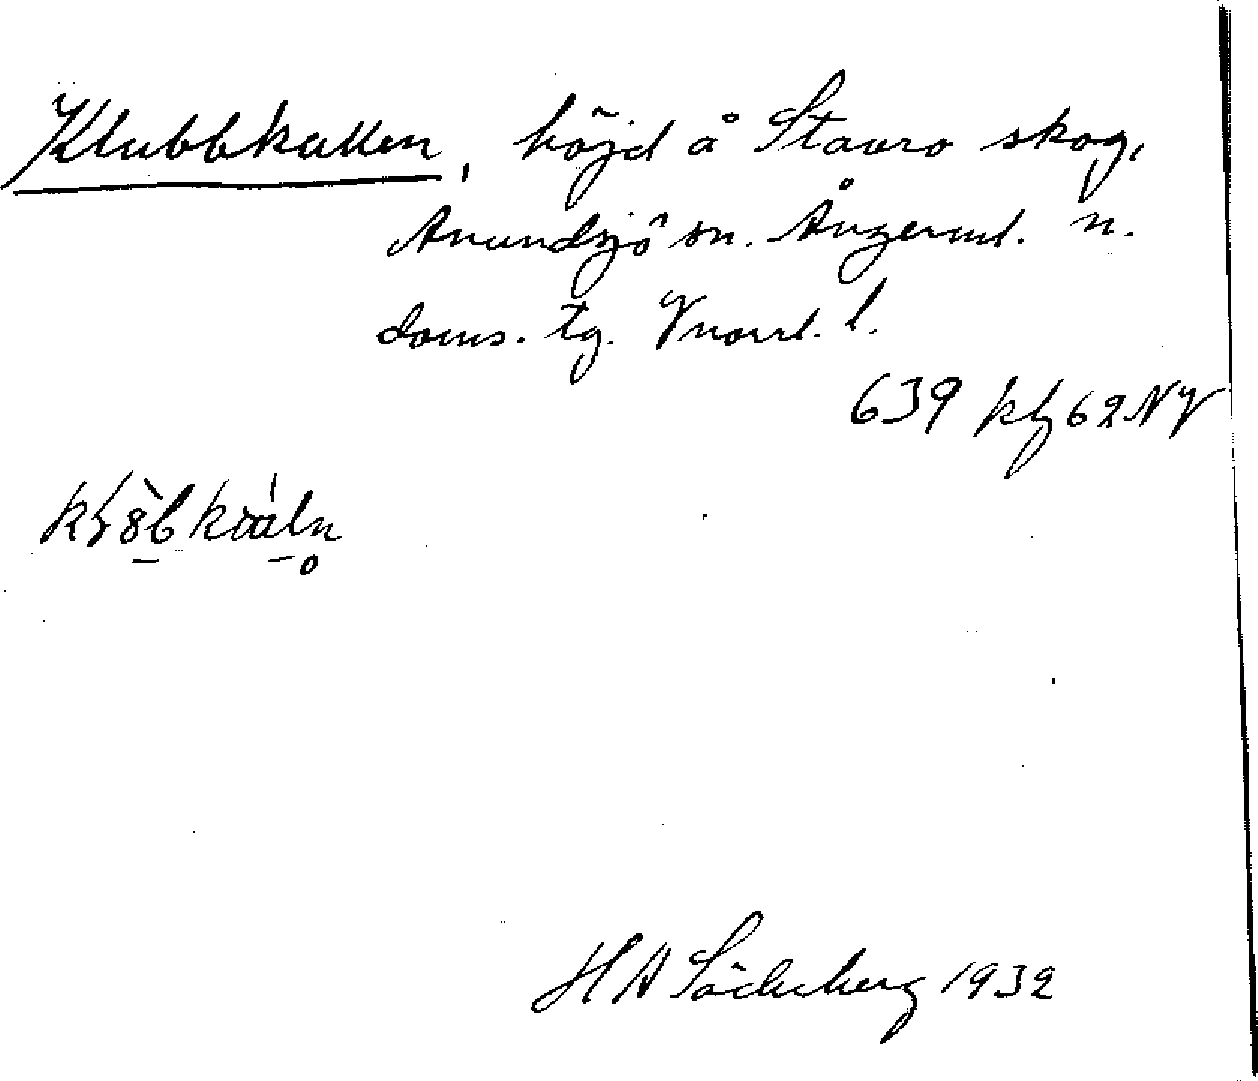 Klubbkallen, höjd å Stavro skog,
Anundsjö sn. Ångerml. n.
doms. tg. Vnorrl. l.
639 kbl 62 NV
H A Söderberg 1932